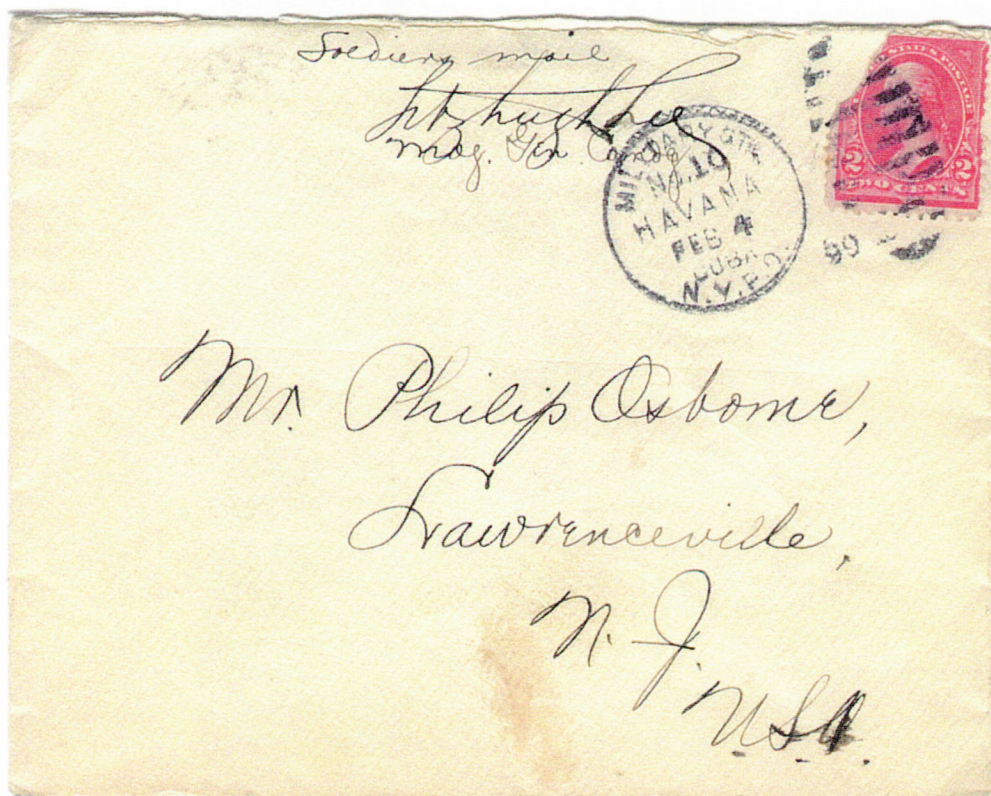 Soldiers mail
Fitzhugh Lee
Maj. Gen. Comdg
MILITARY STA.
No. 10
HAVANA
FEB 4
CUBA
N.Y.P.O.
99
STATES POSTAGE
2 2
TWO CENTS
Mr. Philip Osborne,
Lawrenceville,
N. J.
USA.